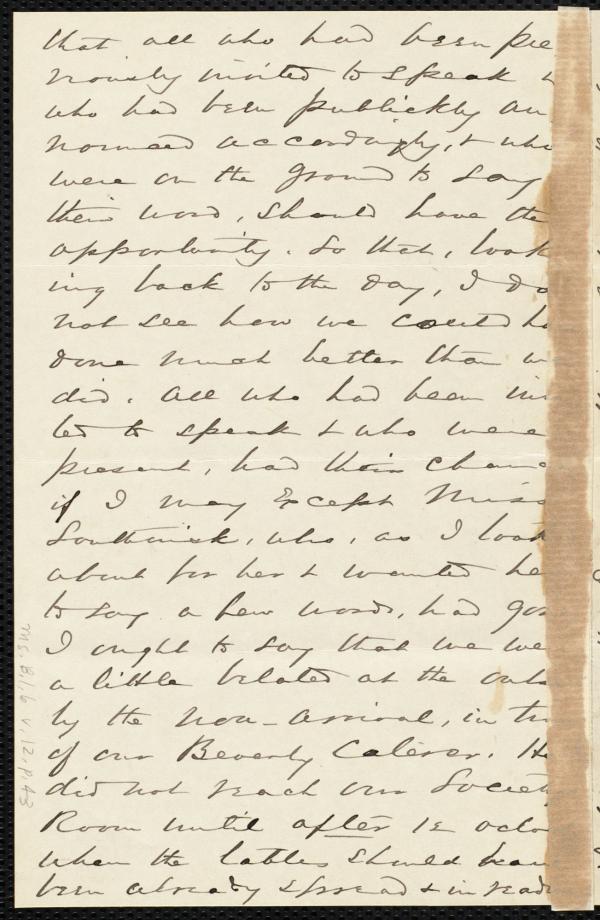 that all who had been pre
viously invited to speak &
who had been publickly an
nounced accordingly, & who
were on the ground to say
their word, should have the
opportunity. So that, look
ing back to the day, I do
not see how we could ha
done much better than w
did. All who had been in
ted to speak & who were
present, had their chanc
if I may except Miss
Southwick, who, as I look
about for her & wanted he
to say a few words, had gon
I ought to say that we we
a little belated at the outs
by the non-arrival, in ti
of our Beverly Caterer. He
did not reach our Society
Room until after 12 oclo
when the tables should hav
been already spread & in read
Ms. B.1.6 v.12, p.43